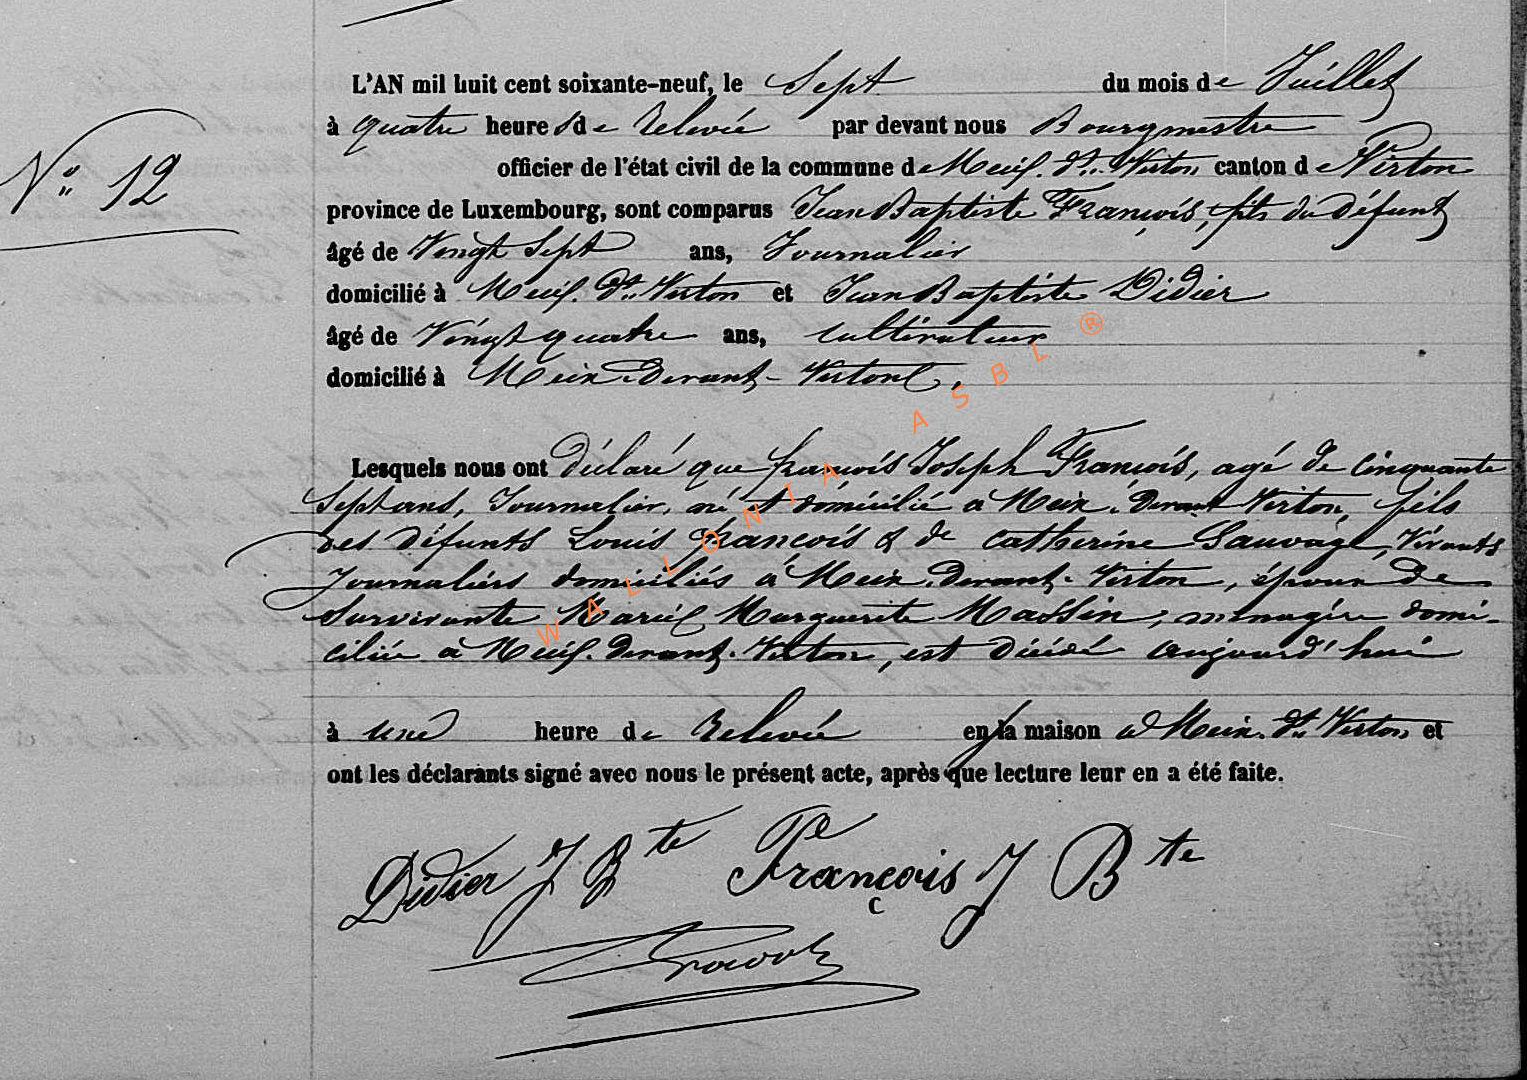 L'AN mil huit cent soixante-neuf, le Sept du mois de Juillet
à quatre heures de Relevée par devant nous Bourgmestre
officier de l'état civil de la commune de Meix. dt. Virton canton de Virton
province de Luxembourg, sont comparus Jean Baptiste François, fils du Défunt
âgé de Vingt Sept ans, Journalier
domicilié à Meix. dt. Virton et Jean Baptiste Didier
âgé de Vingt quatre ans, cultivateur
domicilié à Meix-Devant-Virton.
N° 12
Lesquels nous ont déclaré que françois Joseph François, agé de cinquante
Sept ans, Journalier, né & domicilié à Meix-Devant Virton, fils
des défunts Louis françois & de Catherine Sauvage, Vivants
Journaliers domiciliés à Meix-Devant-Virton, époux de
Survivante Marie Marguerite Massin, ménagère domi-
ciliée à Meix-Devant-Virton, est décédé aujourd'hui
à une heure de Relevée en la maison à Meix. dt. Virton et
ont les déclarants signé avec nous le présent acte, après que lecture leur en a été faite.
Didier J Bte François J Bte
WALLONIA ASBL ®